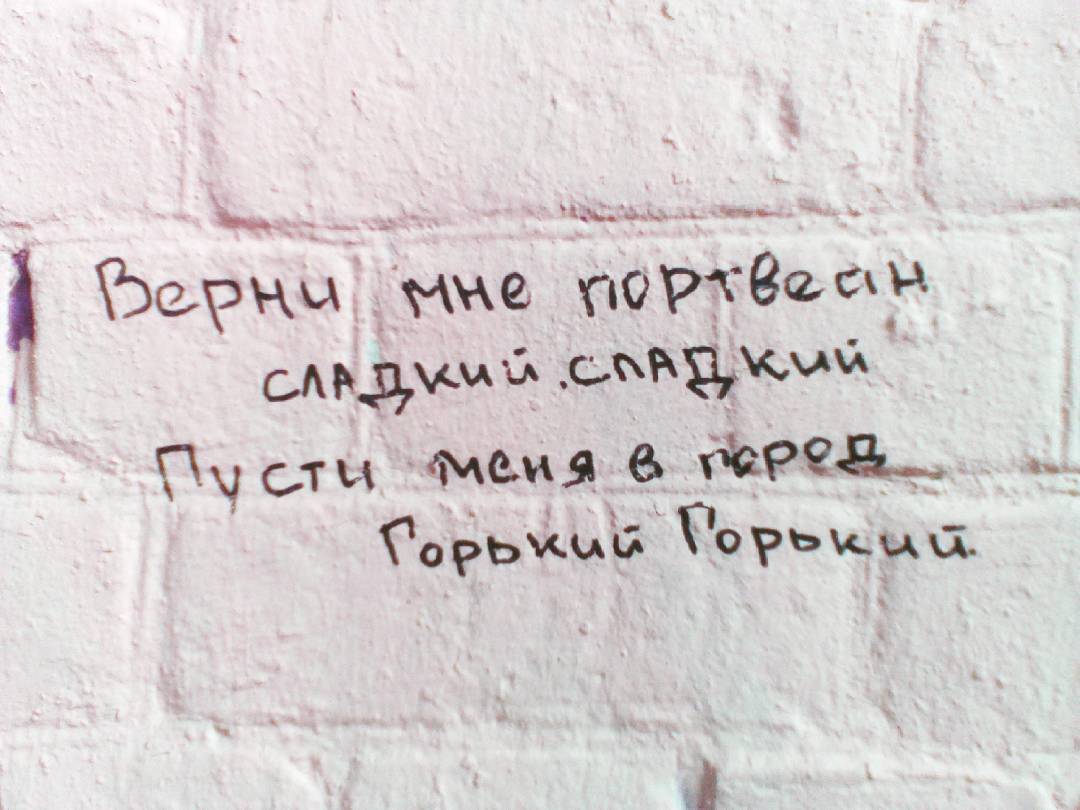 Верни мне портвеин
сладкий, сладкий
Пусти меня в город
Горький Горький.